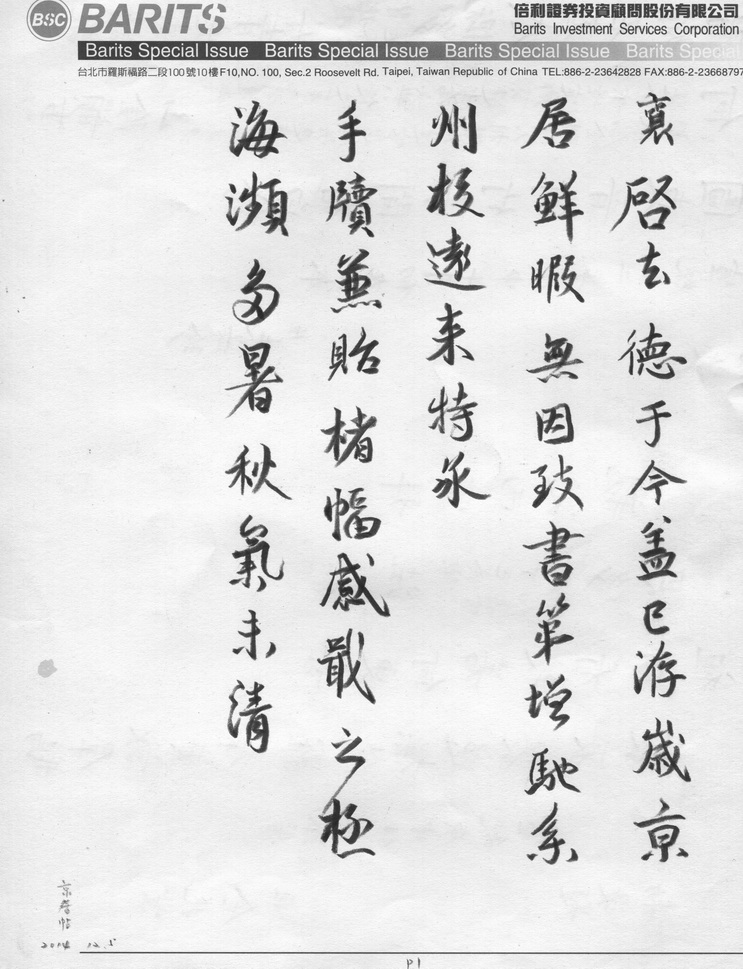 BSC BARITS
倍利證券投資顧問股份有限公司
Barits Investment Services Corporation
Barits Special Issue Barits Special Issue Barits Special Issue Barits Special
台北市羅斯福路二段100號10樓F10,NO. 100, Sec.2 Roosevelt Rd. Taipei, Taiwan Republic of China TEL:886-2-23642828 FAX:886-2-23668797
襄啓去德于今盖已洊歲京
居鮮暇無因致書第增馳系
州校遠来特承
手牘兼貽楮幅感戢之極
海瀕多暑秋氣未清
京居帖
2014 12.5
P1